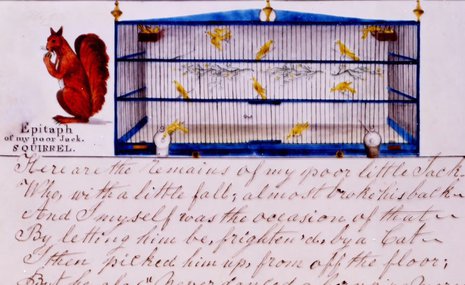 Epitaph
of my poor Jack.
SQUIRREL.
Here are the Remains of my poor little Jack
Who, with a little fall, almost broke his back
And I myself was the occasion of that
By letting him be frighten'd, by a Cat
I then picked him up, from off the floor;
But he alas! Never danced a